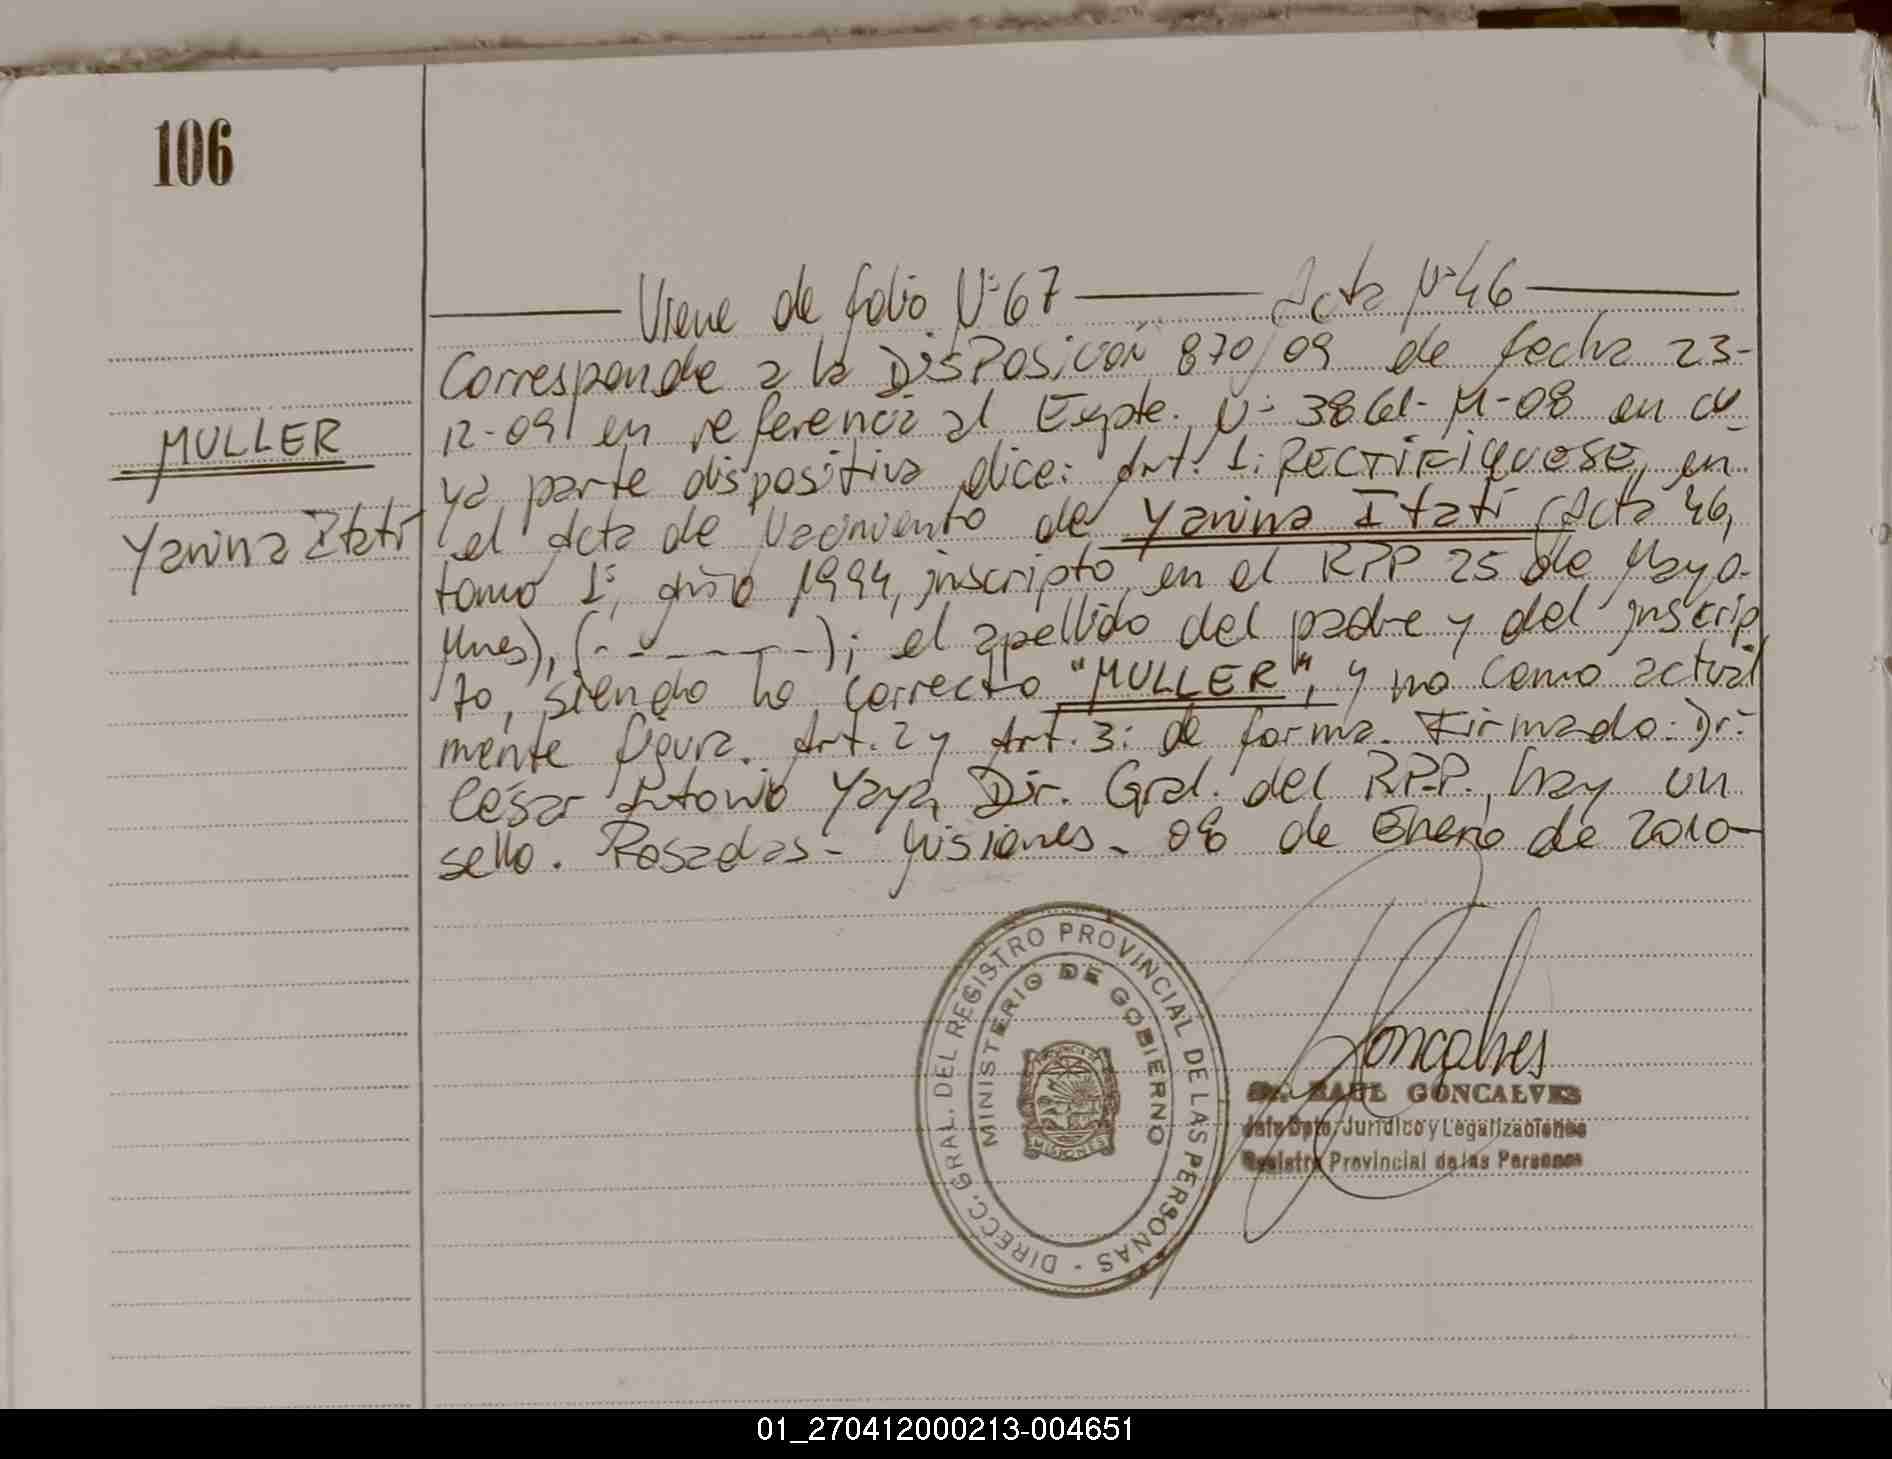 106
Viene de folio Nº 67 Acta Nº 46
Corresponde a la Disposición 870/09 de fecha 23-
12-09 en referencia al Expte. Nº M-08 en cu
MULLER
ya parte dispositiva dice: Art. 1: RECTIFIQUESE, en
Yanina Itatí
el Acta de Nacimiento de Yanina Itatí (Acta 46,
tomo 1º, año 1994, inscripto en el RPP 25 de Mayo-
Mnes), (- - - - - - -); el apellido del padre y del inscrip
to, siendo lo correcto "MULLER", y no como actual
mente figura. Art. 2 y Art. 3: de forma. Firmado: Dr.
César Antonio Yaya, Dir. Gral. del R.P.P., hay un
sello. Posadas - Misiones - 08 de Enero de 2010-
DIRECC. GRAL. DEL REGISTRO PROVINCIAL DE LAS PERSONAS -
MINISTERIO DE GOBIERNO
MISIONES
Goncalves
Dr. RAUL GONCALVES
Jefe Dpto. Jurídico y Legalizaciones
Registro Provincial de las Personas
01_270412000213-004651